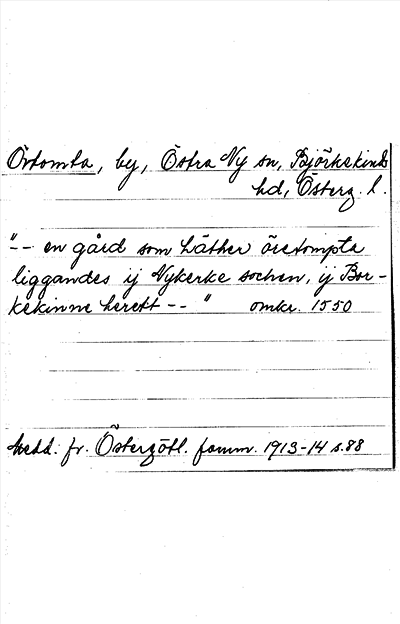 Örtomta, by, Östra Ny sn, Björkekinds
hd, Österg. l.
"-- en gård som häther öretompta
liggandes ij Nykerke sochen, ij Bor-
kekinne herett -- " omkr. 1550
Medd. fr. Östergötl. fornm. 1913-14 s. 88